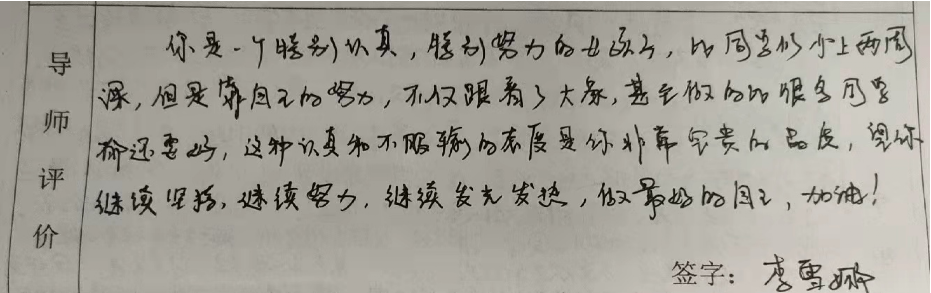 导师评价
你是一个特别认真,特别努力的女孩子,比同学们少上两周
课,但是靠自己的努力,不仅跟着了大家,甚至做的比很多同学
都还要好,这种认真和不服输的态度是你非常宝贵的品质,望你
继续坚持,继续努力,继续发光发热,做最好的自己,加油!
签字:李雪娜